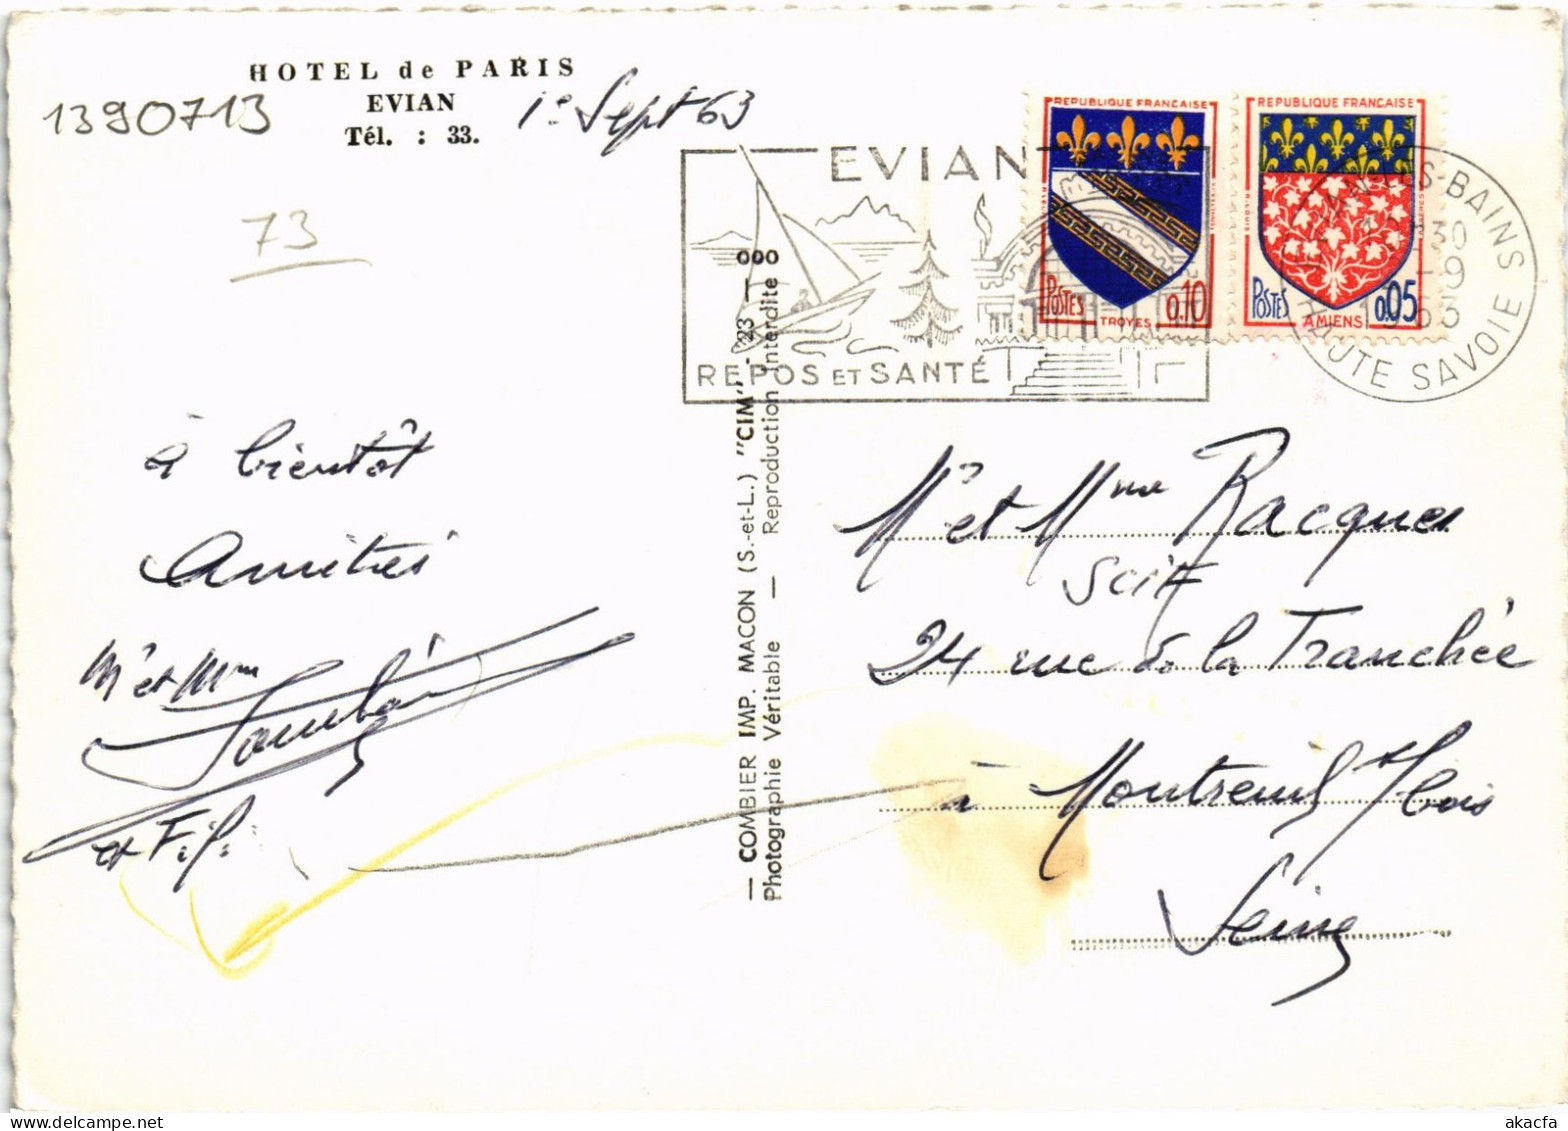 HOTEL de PARIS
EVIAN
Tél. : 33.
1390713
1e Sept 63
73
EVIAN
REPOS ET SANTÉ
REPUBLIQUE FRANÇAISE
POSTES
0.10
TROYES
REPUBLIQUE FRANÇAISE
POSTES
0.05
AMIENS
BAINS
HAUTE SAVOIE
30
-9
1963
à bientôt
Amitiés
Mr et Mme
et Fils
— COMBIER IMP. MACON (S.-et-L.) "CIM" - 23 — 000
Photographie Véritable — Reproduction Interdite
Mr et Mme Racques
24 rue de la Tranchée
à Montreuil s/bois
Seine
akacfa